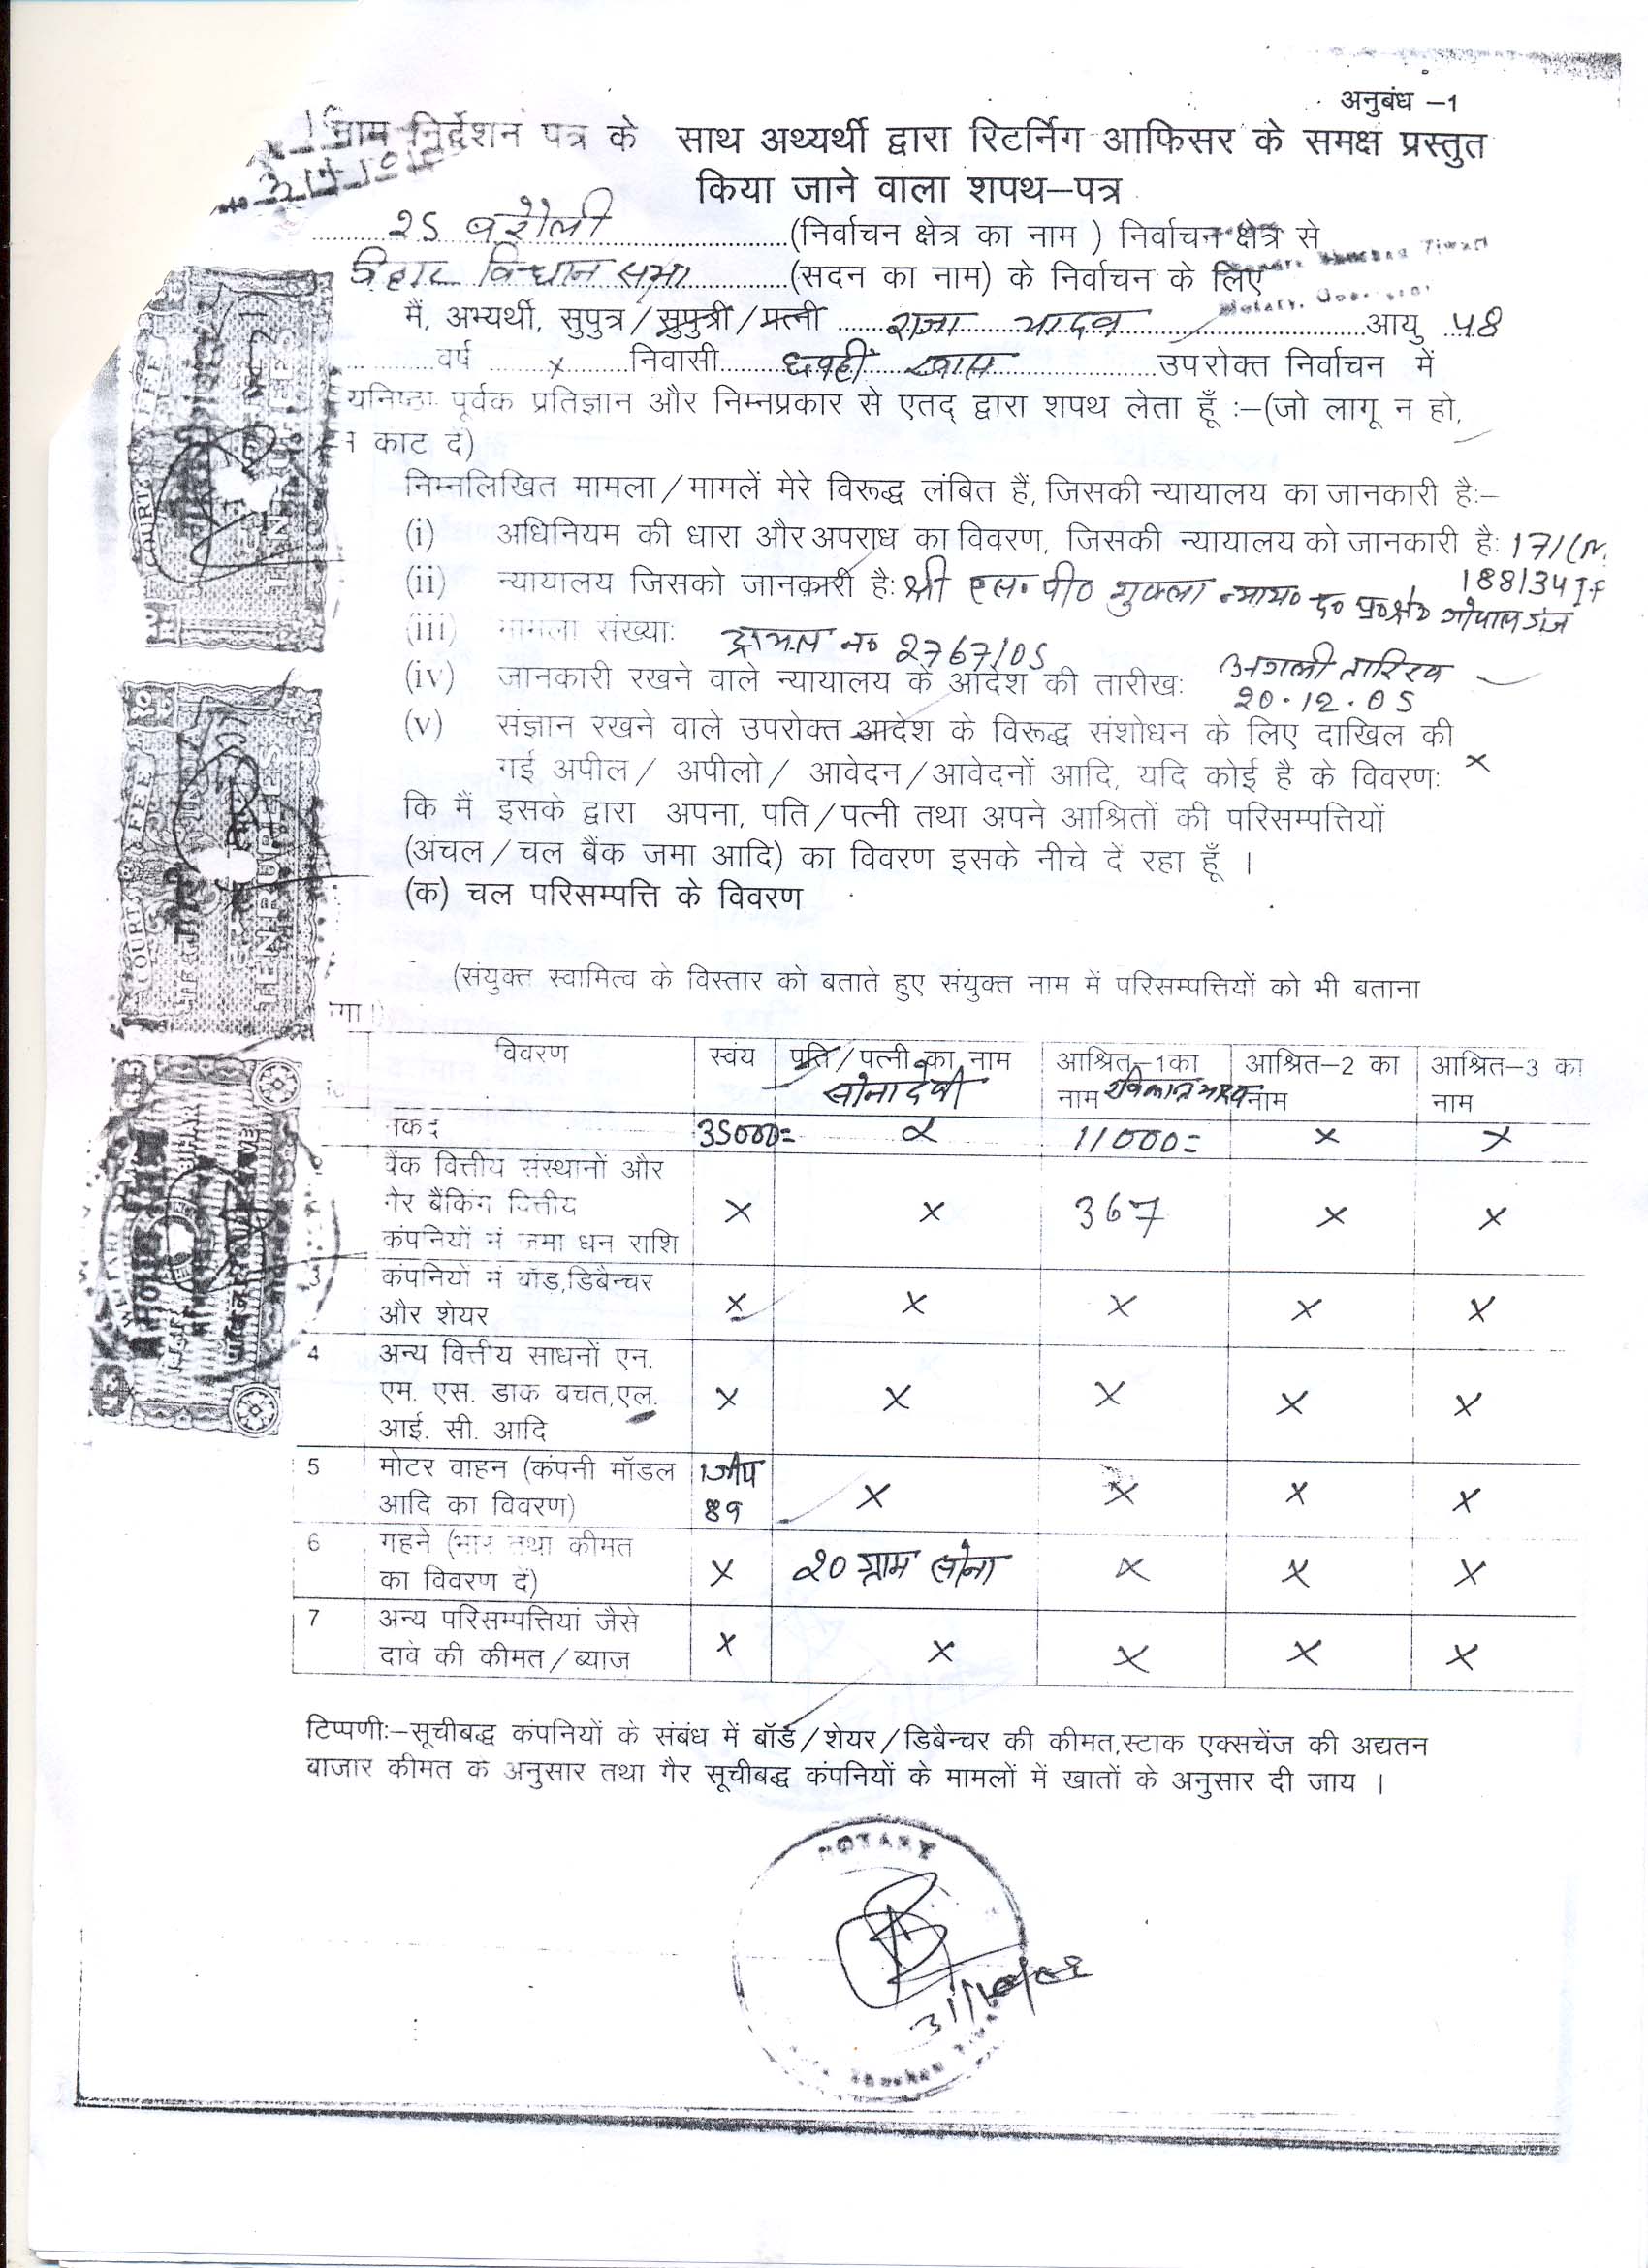 अनुबंध –1
नाम निर्देशन पत्र के साथ अथ्यर्थी द्वारा रिटर्निग आफिसर के समक्ष प्रस्तुत
किया जाने वाला शपथ–पत्र
25 बरौली (निर्वाचन क्षेत्र का नाम ) निर्वाचन क्षेत्र से
बिहार विधान सभा (सदन का नाम) के निर्वाचन के लिए
मैं, अभ्यर्थी, सुपुत्र/सुपुत्री/पत्नी राजा यादव आयु 58
वर्ष x निवासी खास उपरोक्त निर्वाचन में
यनिष्ठा पूर्वक प्रतिज्ञान और निम्नप्रकार से एतद् द्वारा शपथ लेता हूँ :–(जो लागू न हो,
काट दें)
निम्नलिखित मामला/मामलें मेरे विरूद्ध लंबित हैं, जिसकी न्यायालय का जानकारी है:–
(i) अधिनियम की धारा और अपराध का विवरण, जिसकी न्यायालय को जानकारी है: 171
188/34
(ii) न्यायालय जिसको जानकारी है: श्री एस० पी० शुक्ला गोपालगंज
(iii) मामला संख्या: नं० 2767/05
(iv) जानकारी रखने वाले न्यायालय के आदेश की तारीख: अगली तारिख
20.12.05
(v) संज्ञान रखने वाले उपरोक्त आदेश के विरूद्ध संशोधन के लिए दाखिल की
गई अपील/ अपीलो/ आवेदन/आवेदनों आदि, यदि कोई है के विवरण: x
कि मैं इसके द्वारा अपना, पति/पत्नी तथा अपने आश्रितों की परिसम्पत्तियों
(अंचल/चल बैंक जमा आदि) का विवरण इसके नीचे दें रहा हूँ ।
(क) चल परिसम्पत्ति के विवरण
(संयुक्त स्वामित्व के विस्तार को बताते हुए संयुक्त नाम में परिसम्पत्तियों को भी बताना
गा।)
विवरण स्वंय पति/पत्नी का नाम आश्रित–1का आश्रित–2 का आश्रित–3 का
सोना देवी नाम नाम नाम
नकद 35000= x 11000= x x
बैंक वित्तीय संस्थानों और
गैर बैंकिंग वित्तीय x x 367 x x
कंपनियों में जमा धन राशि
3 कंपनियों में बॉड,डिबैन्चर
और शेयर x x x x x
4 अन्य वित्तीय साधनों एन.
एम. एस. डाक बचत,एल. x x x x x
आई. सी. आदि
5 मोटर वाहन (कंपनी मॉडल 1 जीप
आदि का विवरण) 89 x x x x
6 गहने (भार तथा कीमत
का विवरण दें) x 20 ग्राम सोना x x x
7 अन्य परिसम्पत्तियां जैसे
दावे की कीमत/ब्याज x x x x x
टिप्पणी:–सूचीबद्ध कंपनियों के संबंध में बॉर्ड/शेयर/डिबैन्चर की कीमत,स्टाक एक्सचेंज की अद्यतन
बाजार कीमत के अनुसार तथा गैर सूचीबद्ध कंपनियों के मामलों में खातों के अनुसार दी जाय ।
NOTARY
31/10/05